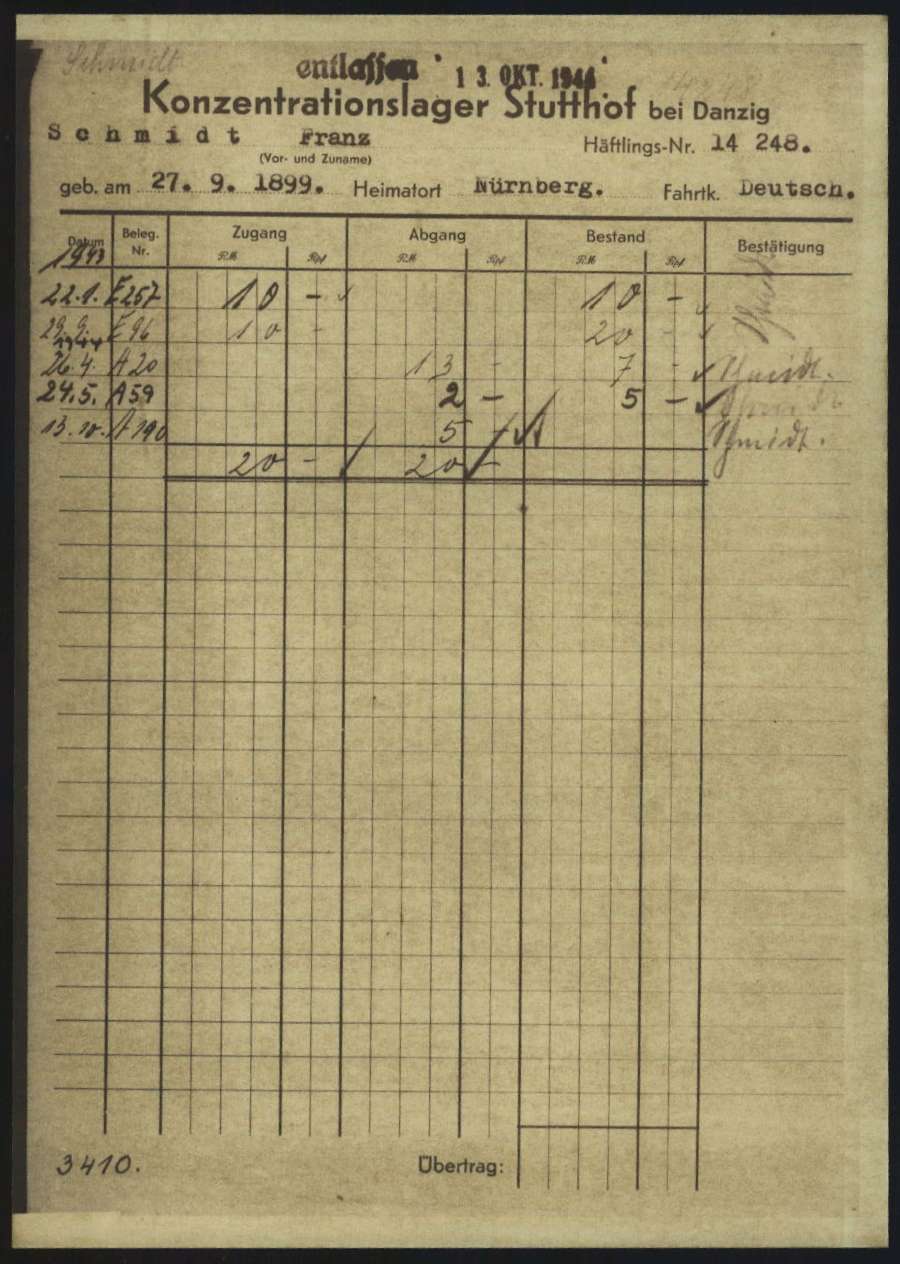 Schmidt
entlassen 13. OKT. 1944
Konzentrationslager Stutthof bei Danzig
Schmidt Franz Häftlings-Nr. 14 248.
(Vor- und Zuname)
geb. am 27. 9. 1899. Heimatort Nürnberg. Fahrtk. Deutsch.
Datum Beleg. Nr. Zugang Abgang Bestand Bestätigung
RM Rpf RM Rpf RM Rpf
1943
22.1. E257 10 - 10 -
29.2. E96 10 - 20 -
26.4. A20 13 - 7 - Schmidt.
24.5. A59 2 - 5 - Schmidt
13.10. A190 5 - Schmidt.
20 - 20 -
3410. Übertrag: